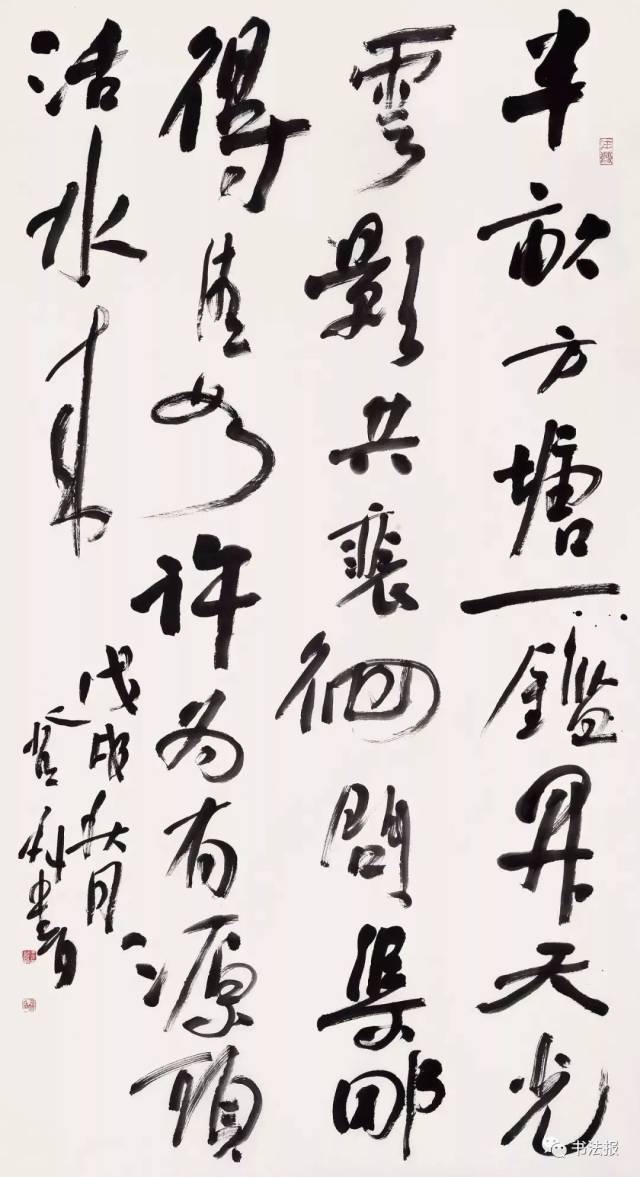 半畝方塘一鑑開天光
雲影共裴徊問渠那
得清如許為有源頭
活水來
戊戌秋月
書
书法报